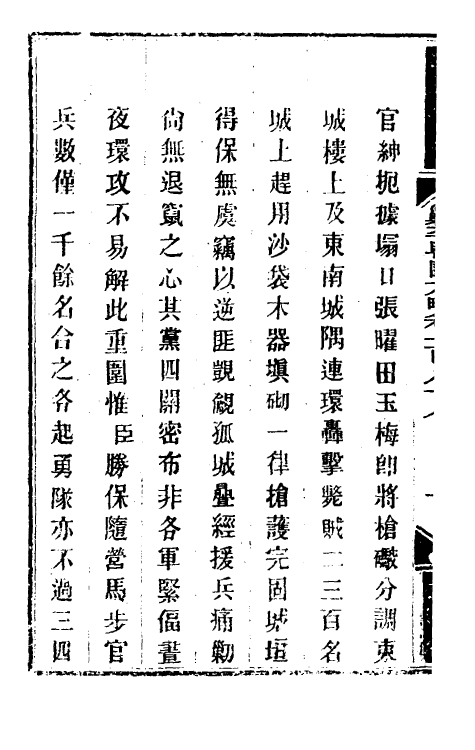 官紳扼據塌口張曜田玉梅卽將槍礮分調東
城樓上及東南城隅連環轟擊斃賊二三百名
城上趕用沙袋木器塡砌一律槍護完固城垣
得保無虞竊以逆匪覬覦孤城疊經援兵痛勦
尙無退竄之心其黨四關密布非各軍緊偪晝
夜環攻不易解此重圍惟臣勝保隨營馬步官
兵數僅一千餘名合之各起勇隊亦不過三四